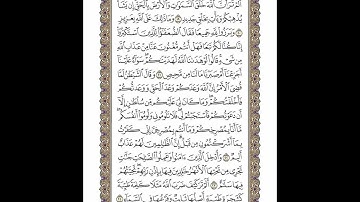 أَلَمْ تَرَ أَنَّ ٱللَّهَ خَلَقَ ٱلسَّمَٰوَٰتِ وَٱلْأَرْضَ بِٱلْحَقِّ إِن يَشَأْ
يُذْهِبْكُمْ وَيَأْتِ بِخَلْقٍ جَدِيدٍ ١٩ وَمَا ذَٰلِكَ عَلَى ٱللَّهِ بِعَزِيزٍ
٢٠ وَبَرَزُوا۟ لِلَّهِ جَمِيعًا فَقَالَ ٱلضُّعَفَٰٓؤُا۟ لِلَّذِينَ ٱسْتَكْبَرُوٓا۟
إِنَّا كُنَّا لَكُمْ تَبَعًا فَهَلْ أَنتُم مُّغْنُونَ عَنَّا مِنْ عَذَابِ ٱللَّهِ
مِن شَىْءٍ قَالُوا۟ لَوْ هَدَىٰنَا ٱللَّهُ لَهَدَيْنَٰكُمْ سَوَآءٌ عَلَيْنَآ
أَجَزِعْنَآ أَمْ صَبَرْنَا مَا لَنَا مِن مَّحِيصٍ ٢١ وَقَالَ ٱلشَّيْطَٰنُ لَمَّا
قُضِىَ ٱلْأَمْرُ إِنَّ ٱللَّهَ وَعَدَكُمْ وَعْدَ ٱلْحَقِّ وَوَعَدتُّكُمْ
فَأَخْلَفْتُكُمْ وَمَا كَانَ لِىَ عَلَيْكُم مِّن سُلْطَٰنٍ إِلَّآ
أَن دَعَوْتُكُمْ فَٱسْتَجَبْتُمْ لِى فَلَا تَلُومُونِى وَلُومُوٓا۟ أَنفُسَكُم
مَّآ أَنَا۠ بِمُصْرِخِكُمْ وَمَآ أَنتُم بِمُصْرِخِىَّ إِنِّى كَفَرْتُ
بِمَآ أَشْرَكْتُمُونِ مِن قَبْلُ إِنَّ ٱلظَّٰلِمِينَ لَهُمْ عَذَابٌ
أَلِيمٌ ٢٢ وَأُدْخِلَ ٱلَّذِينَ ءَامَنُوا۟ وَعَمِلُوا۟ ٱلصَّٰلِحَٰتِ جَنَّٰتٍ
تَجْرِى مِن تَحْتِهَا ٱلْأَنْهَٰرُ خَٰلِدِينَ فِيهَا بِإِذْنِ رَبِّهِمْ تَحِيَّتُهُمْ
فِيهَا سَلَٰمٌ ٢٣ أَلَمْ تَرَ كَيْفَ ضَرَبَ ٱللَّهُ مَثَلًا كَلِمَةً طَيِّبَةً
كَشَجَرَةٍ طَيِّبَةٍ أَصْلُهَا ثَابِتٌ وَفَرْعُهَا فِى ٱلسَّمَآءِ ٢٤